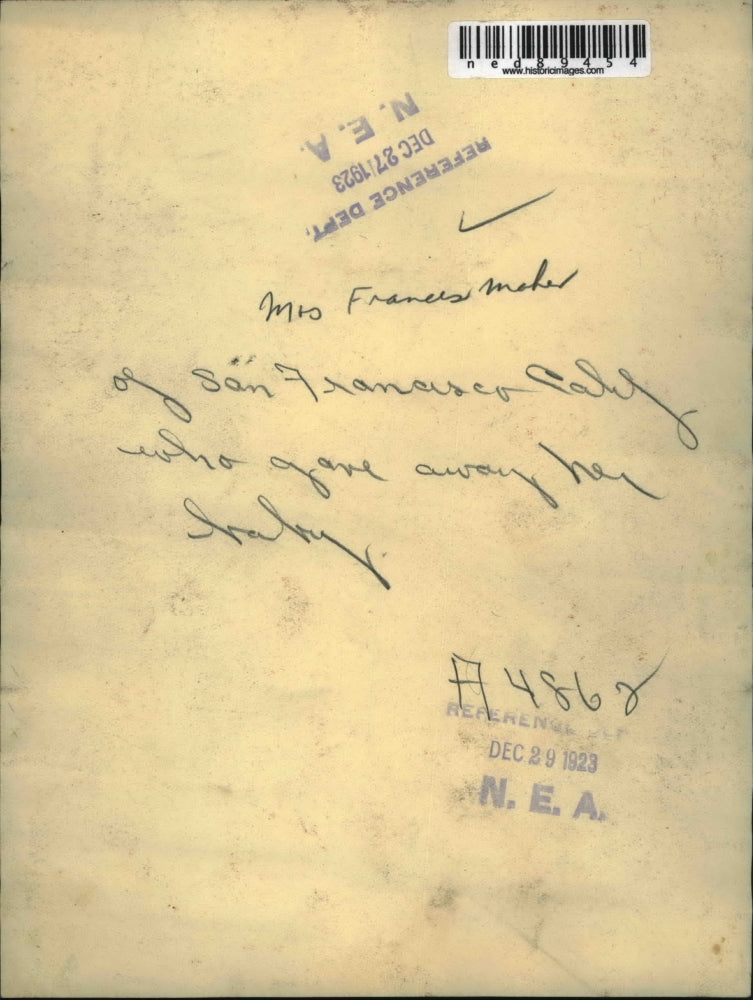 ned89454
www.historicimages.com
N. E. A.
DEC 27 1923
REFERENCE DEPT.
Mrs Frances Maher
of San Francisco Calif
who gave away her
baby.
A 4868
REFERENCE
DEC 29 1923
N. E. A.